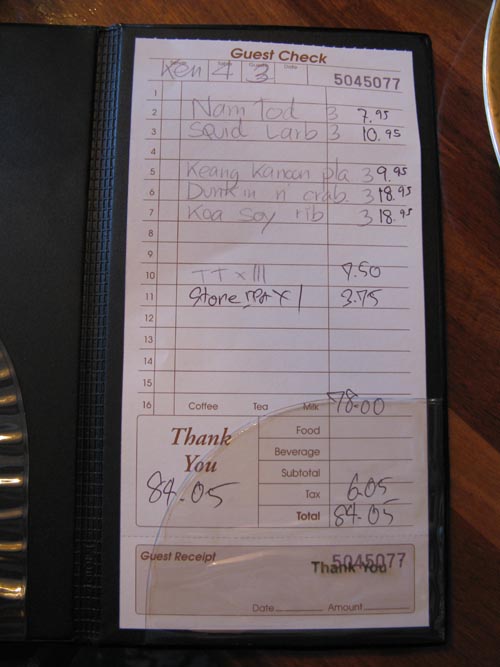 Guest Check
Ken 4 3 Date 5045077
1
2 Nam Tod 3 7.95
3 Squid Larb 3 10.95
4
5 Keang Kanoon pla 3 9.95
6 Dunkin n' crab 3 18.95
7 Koa Soy rib 3 18.95
8
9
10 TT x III 7.50
11 Stone x 1 3.75
12
13
14
15
16 Coffee Tea Milk 78.00
Thank
You
84.05
Food
Beverage
Subtotal
Tax 6.05
Total 84.05
Guest Receipt 5045077
Thank You
Date Amount